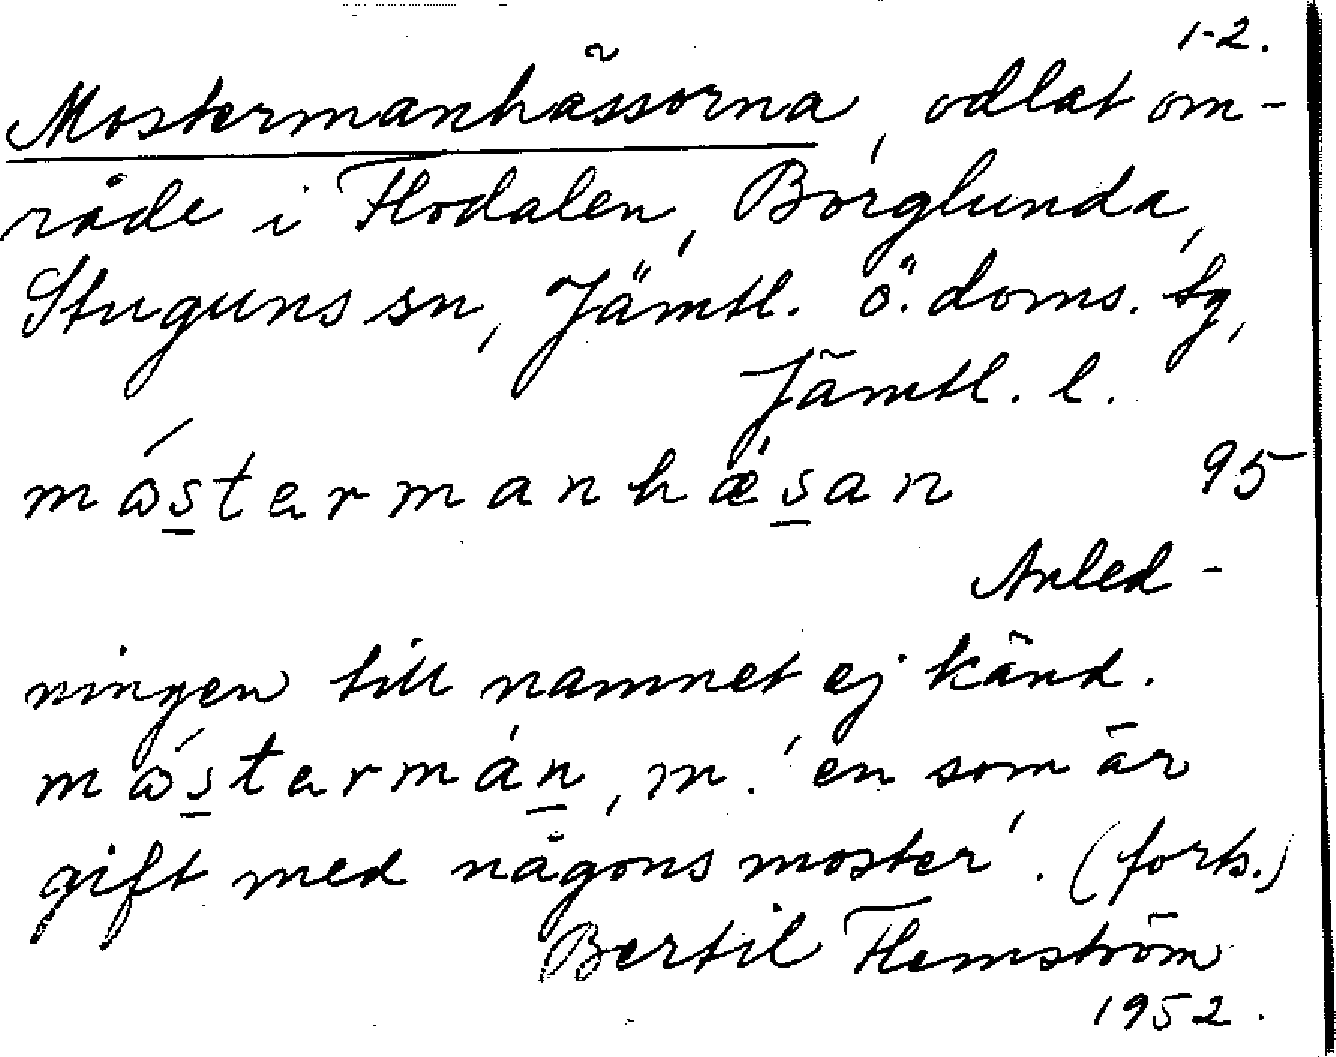 1-2.
Mostermanhässorna, odlat om-
råde i Flodalen, Borglunda,
Stuguns sn, Jämtl. ö. doms. tg,
Jämtl. l.
móstermanhæ̀san 95
Anled-
ningen till namnet ej känd.
móstermàn, m. 'en som är
gift med någons moster'. (forts.)
Bertil Flemström
1952.